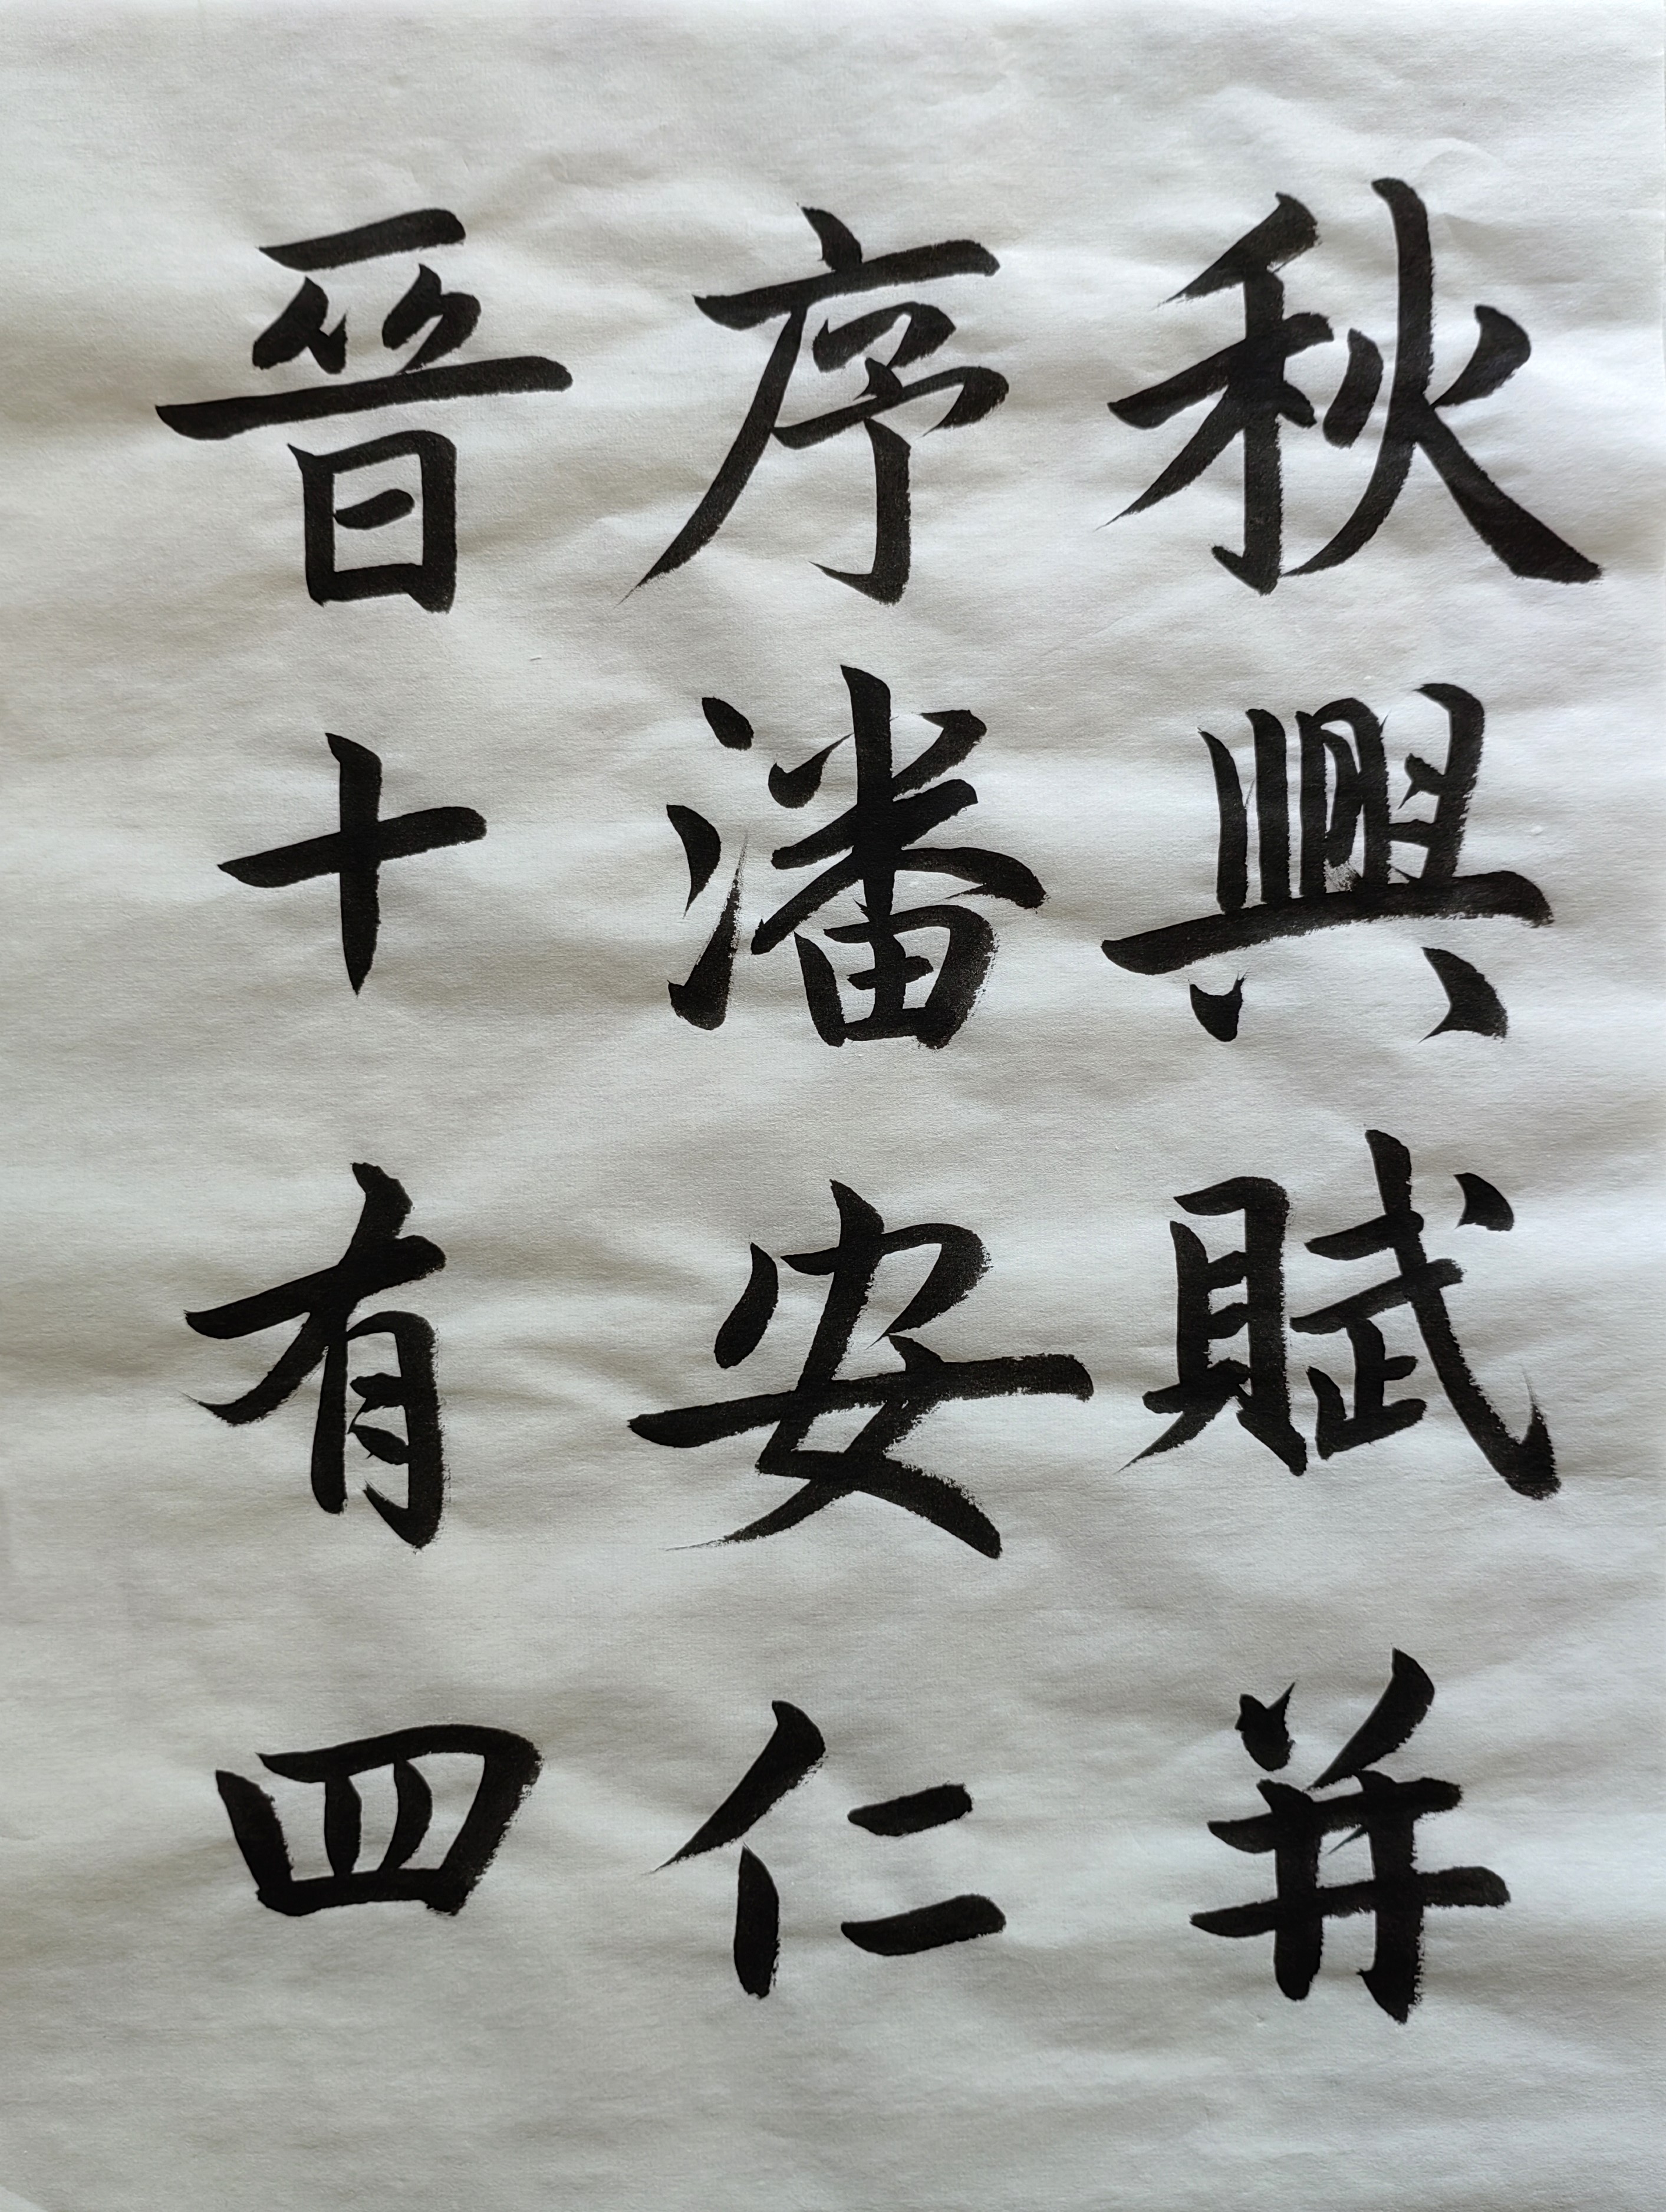 秋興賦并
序潘安仁
晉十有四